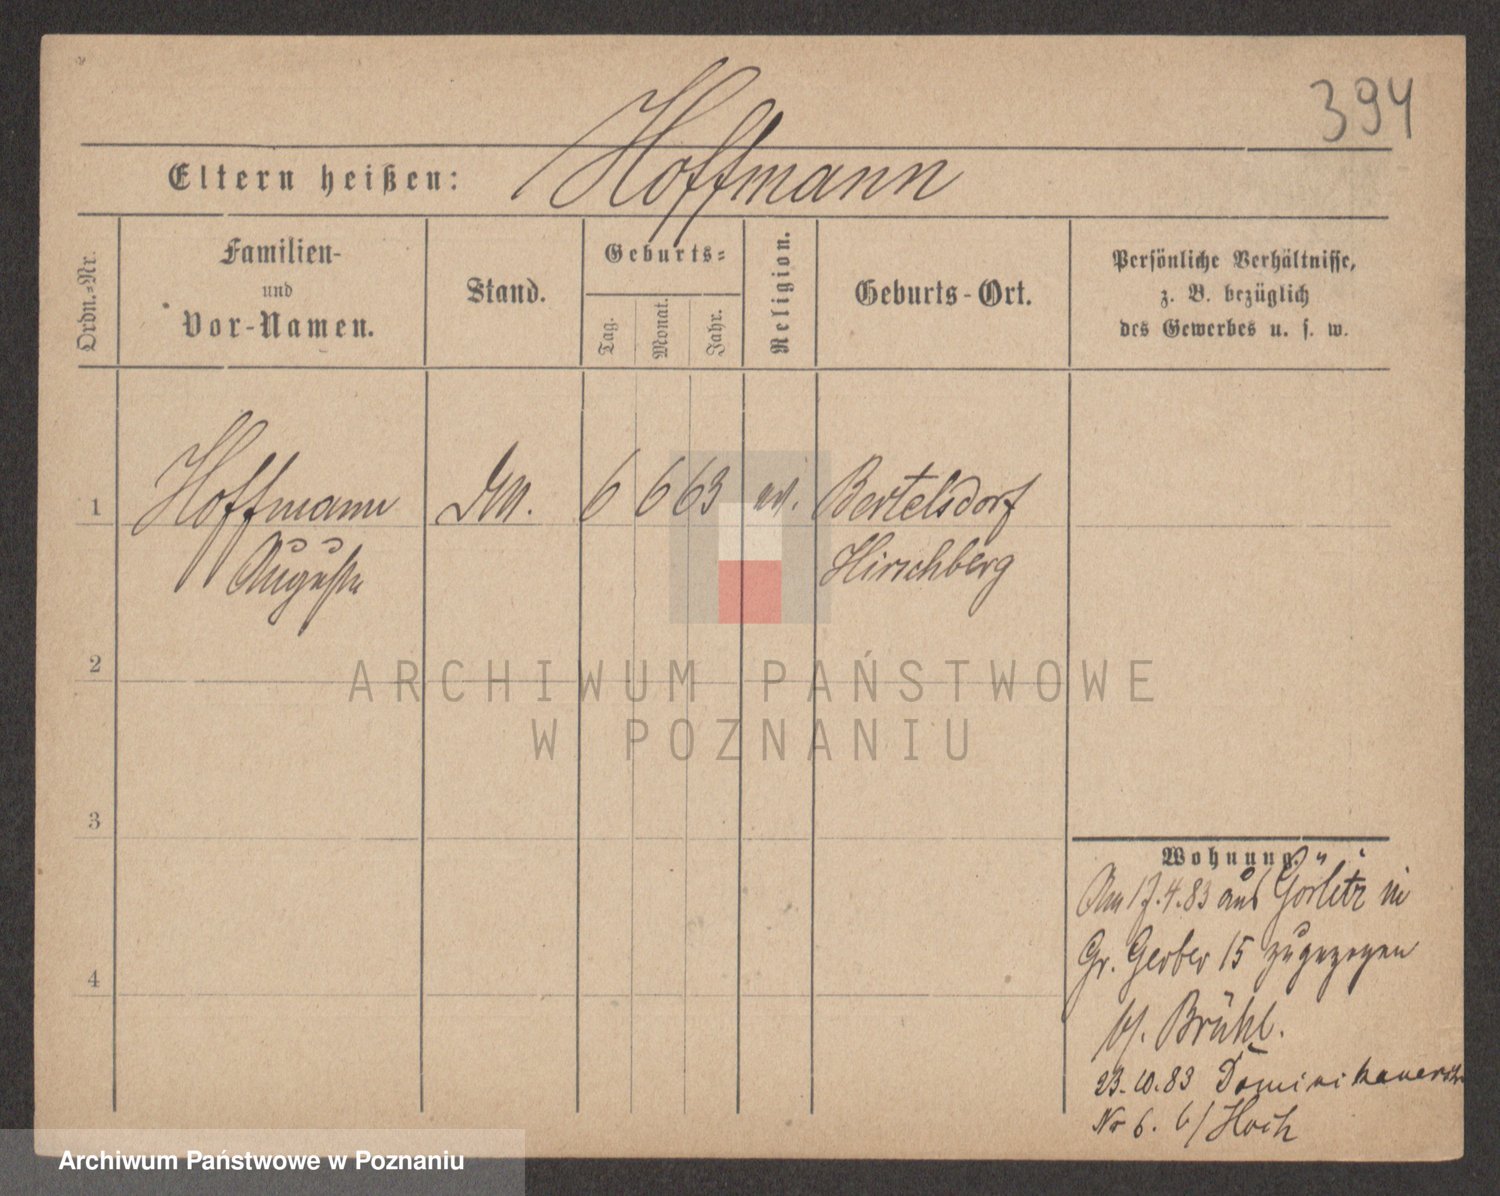 394
Eltern heißen: Hoffmann
Ordn.-Nr.
Familien-
und
Vor-Namen.
Stand.
Geburts-
Tag.
Monat.
Jahr.
Religion.
Geburts-Ort.
Persönliche Verhältnisse,
z. B. bezüglich
des Gewerbes u. s. w.
1 Hoffmann 6 6 63 ev. Bertelsdorf
Auguste Hirschberg
2
3
4
Wohnung.
Am 17.4.83 aus Görlitz in
Gr. Gerber 15 zugezogen
b/. Brühl.
23.10.83 Dominikanerstr
Nr 6. b/
ARCHIWUM PAŃSTWOWE
W POZNANIU
Archiwum Państwowe w Poznaniu